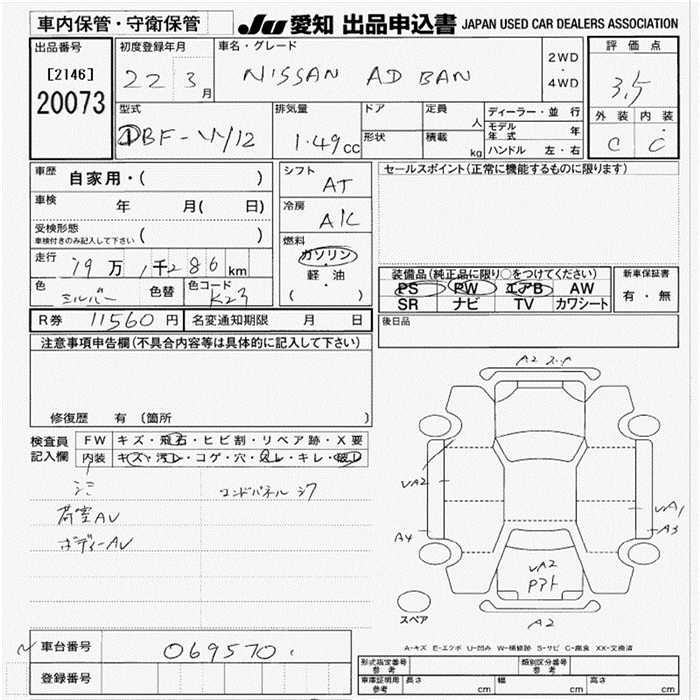 車内保管・守衛保管
JU 愛知 出品申込書 JAPAN USED CAR DEALERS ASSOCIATION
出品番号
[2146]
20073
初度登録年月
22 3月
車名・グレード
NISSAN AD BAN
2WD
・
4WD
評価点
3.5
外装 内装
C C
型式
DBF-VY12
排気量
1.49cc
ドア
形状
定員 人
積載 kg
ディーラー・並行
モデル年式 年
ハンドル 左・右
車歴 自家用・( )
車検 年 月( 日)
受検形態
車検付きのみ記入して下さい ( )
走行 19万 1千286km
色 シルバー 色替 色コード K23
シフト
AT
冷房
A/C
燃料
ガソリン
・
軽・油
( )
セールスポイント(正常に機能するものに限ります)
装備品(純正品に限り○をつけてください)
PS PW エアB AW
SR ナビ TV カワシート
新車保証書
有・無
R券 11560円 名変通知期限 月 日
後日品
注意事項申告欄(不具合内容等は具体的に記入して下さい)
修復歴 有 (箇所 )
検査員
記入欄
FW キズ・飛石・ヒビ割・リペア跡・X要
内装 キズ・汚レ・コゲ・穴・スレ・キレ・破レ
コンドパネルシワ
荷室AU
ボディーAU
A2
UA2
A4
UA1
A3
UA2
Pアト
A2
スペア
A-キズ E-エクボ U-凹み W-補修跡 S-サビ C-腐食 XX-交換済
車台番号 069570
登録番号
形式指定番号
参考
類別区分番号
参考
車庫証明用
参考
長さ cm 幅 cm 高さ cm